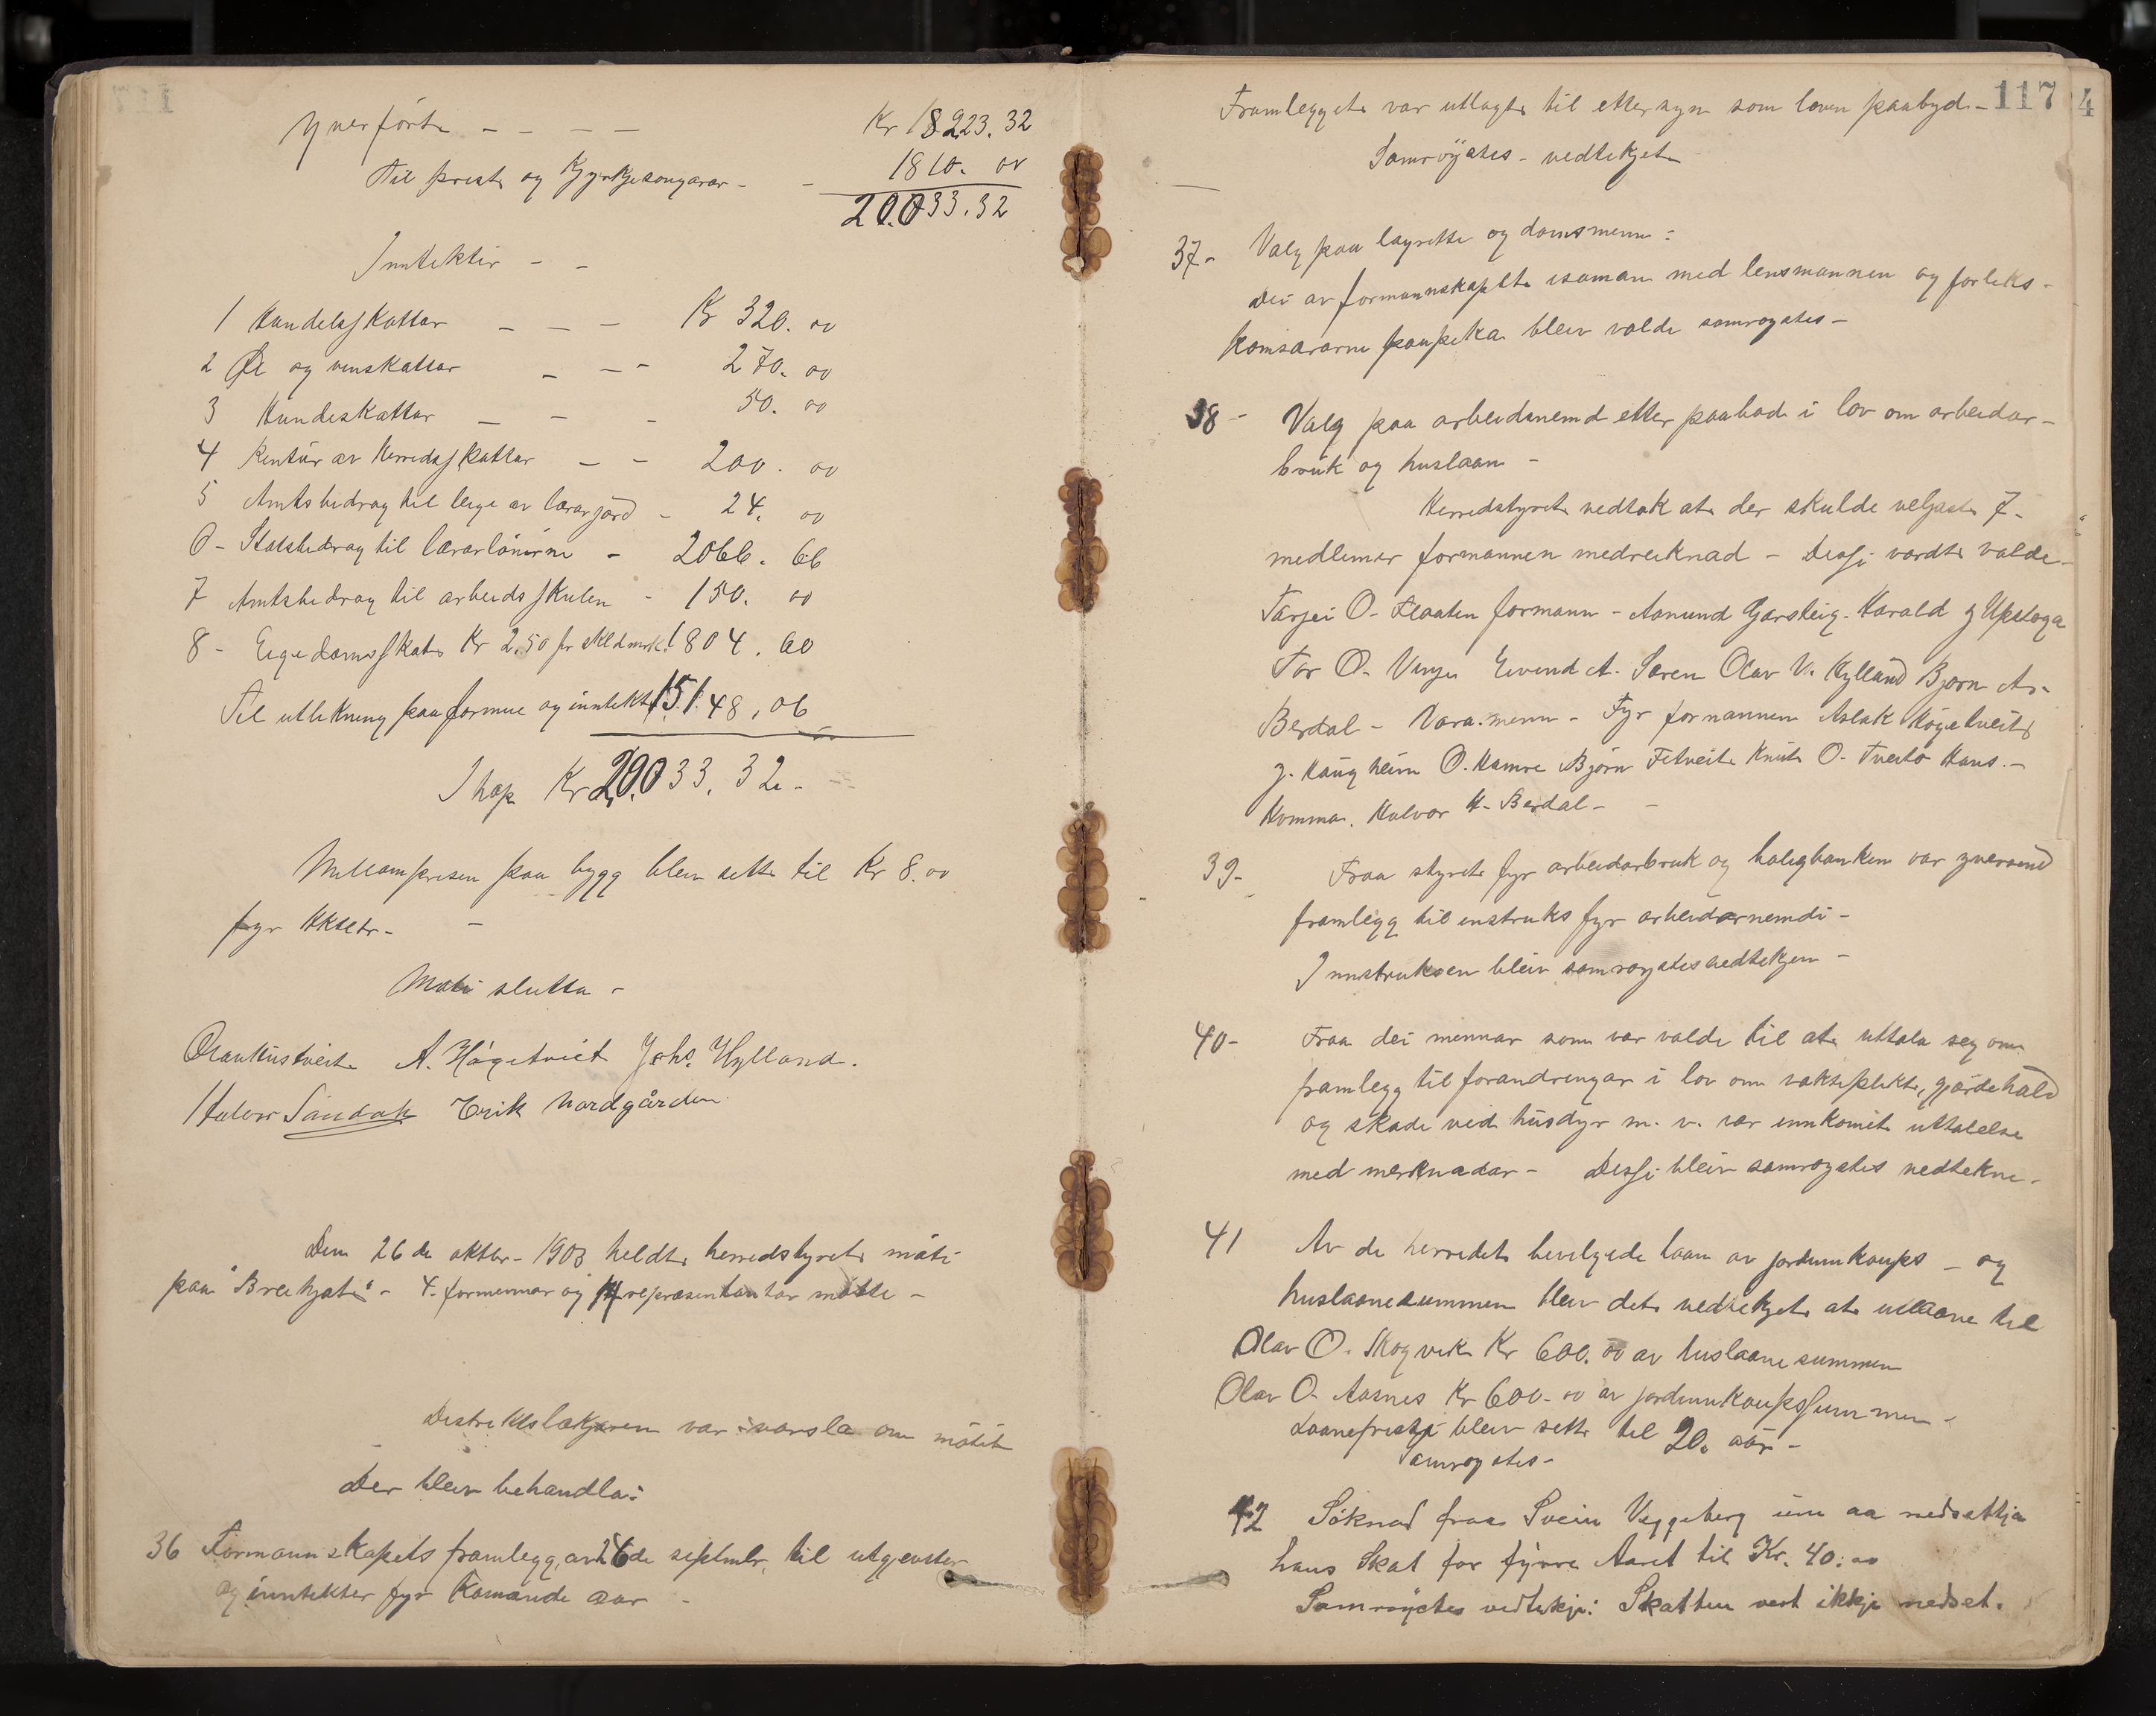 Yverförte - - - - Kr 18223.32
Til prest og Kyrkjesongarar - - 1810. 00
20.033.32
Inntekter - -
1 Handelsskattar - - - Kr 320. 00
2 Øl og vinskattar - - - 270. 00
3 Hundeskattar - - - 50. 00
4 Rentur av Herredsskattar - - 200. 00
5 Amtsbedrag til leige av lærarjord - 24. 00
6 - Statsbedrag til lærarlönirne - 2066. 66
7 Amtsbedrag til arbeidsskulen - 150. 00
8 - Eigedomsskat Kr 2,50 pr skldmrk. 1804. 60
Til utlikning paa formue og inntekt 15.148,06
I hop Kr 20.033.32 -
Millomprisen paa bygg bleiv sett til Kr 8.00
fyr Hktltr - -
Möti slutta -
Olav Kústveit A. Högetveit Johs. Hylland.
Halvor Sandok Eirik Nordgården
Den 26de oktbr - 1903 heldt herredstyret möti
paa "Breikjati" - 4. formennar og 14 representantar mötte -
Distriktslækjaren var varsla om mötet
Der bleiv behandla:
36 Formannskapets framlegg av 26de septmbr. til utgjevster
og inntekter fyr komande aar -
117 4
Framlegget var utlagt til ettersyn som loven paabyd -
Samröystes - vedtekjet
37 - Valg paa lagrette og domsmenn:
Dei av formannskaplet isaman med lensmannen og forleks-
komsararne paapeka bleiv valde samroystes -
38 - Valg paa arbeidsnemd etter paabod i lov om arbeidar-
bruk og huslaan -
Herredstyret vedtok at der skulde veljast 7 -
medlemer formannen medreiknad - Dessi vardt valde -
Tarjei O - Flaaten formann - Aanund Garsteig - Harald G Upsloga
Tor O. Vinje Eivind A. Soren Olav V. Hylland Bjorn A.
Berdal - Vara:menn - Fyr formannen Aslak Högetveit
G. Haugheim O. Hamre Bjørn Fetveit Knut O. Tveito Hans. -
Homma. Halvor H. Berdal - -
39 - Fraa styret fyr arbeidarbruk og boligbanken var yversend
framlegg til instruks fyr arbeidarnemdi -
Innstruksen bleiv samroystes vedtekjen -
40 - Fraa dei mennar som var valde til at uttala seg om
framlegg til forandringar i lov om vakteplikt, gjördehald
og skade ved husdyr m. v. var innkomet uttalelse
med merknadar - Dessi bleiv samroystes vedtekne -
41 Av de herredet bevilgede laan av jordinnkaups - og
huslaanesummen bleiv det vedtekjet at utlaane til
Olav O. Skogvik Kr 600. 00 av huslaanesummen
Olav O. Aasnes Kr 600 - 00 av jordinnkaupssummen -
Laanefristi bleiv sett til 20. aar -
Samroystes -
42 Söknad fraa Svein Veggeberg um aa nedsettja
hans Skat for fyrre Aaret til Kr. 40:00
Samröystes vedtekje: Skatten vert ikkje nedset.